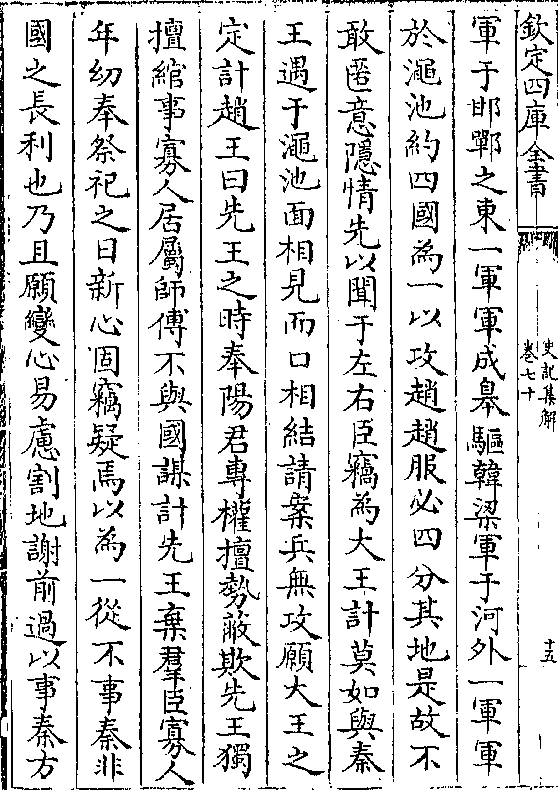 欽定四庫全書
史記集解
卷七十
十五
軍于邯鄲之東一軍軍成皋驅韓梁軍于河外一軍軍
於澠池約四國為一以攻趙趙服必四分其地是故不
敢匿意隱情先以聞于左右臣竊為大王計莫如與秦
王遇于澠池面相見而口相結請案兵無攻願大王之
定計趙王曰先王之時奉陽君專權擅勢蔽欺先王獨
擅綰事寡人居屬師傅不與國謀計先王棄羣臣寡人
年幼奉祭祀之日新心固竊疑焉以為一從不事秦非
國之長利也乃且願變心易慮割地謝前過以事秦方